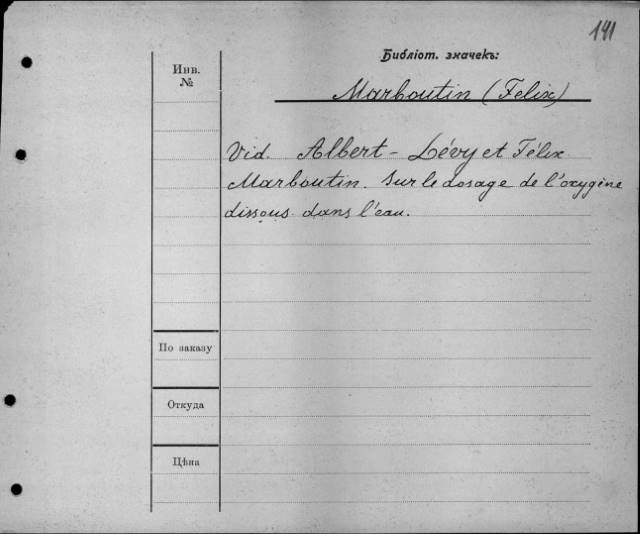 141
Библіот. значекъ:
Инв.
№
Marboutin (Felix)
Vid. Albert - Lévy et Félix
Marboutin. Sur le dosage de l'oxygène
dissous dans l'eau.
По заказу
Откуда
Цѣна